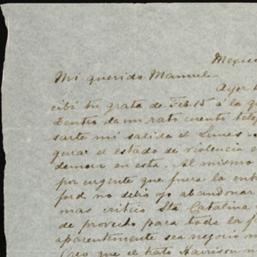 Mexico
Mi querido Manuel.
Ayer
cibí tu grata de Feb. 15 á la q
dentro de un rato cuento tele
sarte mi salida el Lunes.
guir el estado de violencia e
demora en esta. Al mismo
por urgente que fuera la ent
ford no debia yo abandonar
mas critico Sta Catalina
de provecho para toda la f
aparentemente sea negocio m
Creo que el trato Harrison n